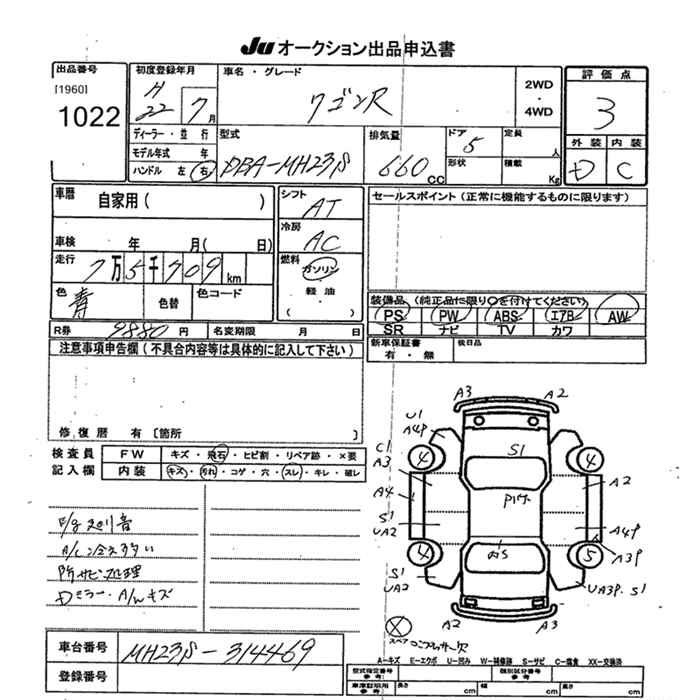 JU オークション出品申込書
出品番号
[1960]
1022
初度登録年月
H
22 7 月
ディーラー・並 行
モデル年式 年
ハンドル 左 右
車名・グレード
ワゴンR
2WD
・
4WD
型式
DBA-MH23S
排気量
660 CC
ドア
5
形状
定員
人
積載
Kg
評価点
3
外装 内装
D C
車歴
自家用( )
車検 年 月( 日)
走行
7万5千709 km
色
青
色替
色コード
シフト
AT
冷房
AC
燃料
ガソリン
軽 油
( )
セールスポイント(正常に機能するものに限ります)
装備品(純正品に限り○を付けてください)
PS PW ABS エアB AW
SR ナビ TV カワ
新車保証書
有 ・ 無
後日品
R券 9880 円 名変期限 月 日
注意事項申告欄(不具合内容等は具体的に記入して下さい)
修復歴 有[箇所 ]
検査員
記入欄
FW キズ・飛石・ヒビ割・リペア跡・×要
内装 キズ・汚れ・コゲ・穴・スレ・キレ・破レ
A/C冷え
所サビ処理
Dミラー・A/Wキズ
車台番号 MH23S-314469
登録番号
A3 A2
U1
A4P
C1
A3
A4
S1
UA2
S1
UA2
A2 A3
S1
4 4
4 5
A2
A4P
A3P
UA3P S1
A-キズ E-エクボ U-凹み W-補修跡 S-サビ C-腐食 XX-交換済
型式指定番号
参考)
類別区分番号
参考)
車庫証明用
参考)
長さ cm 幅 cm 高さ cm